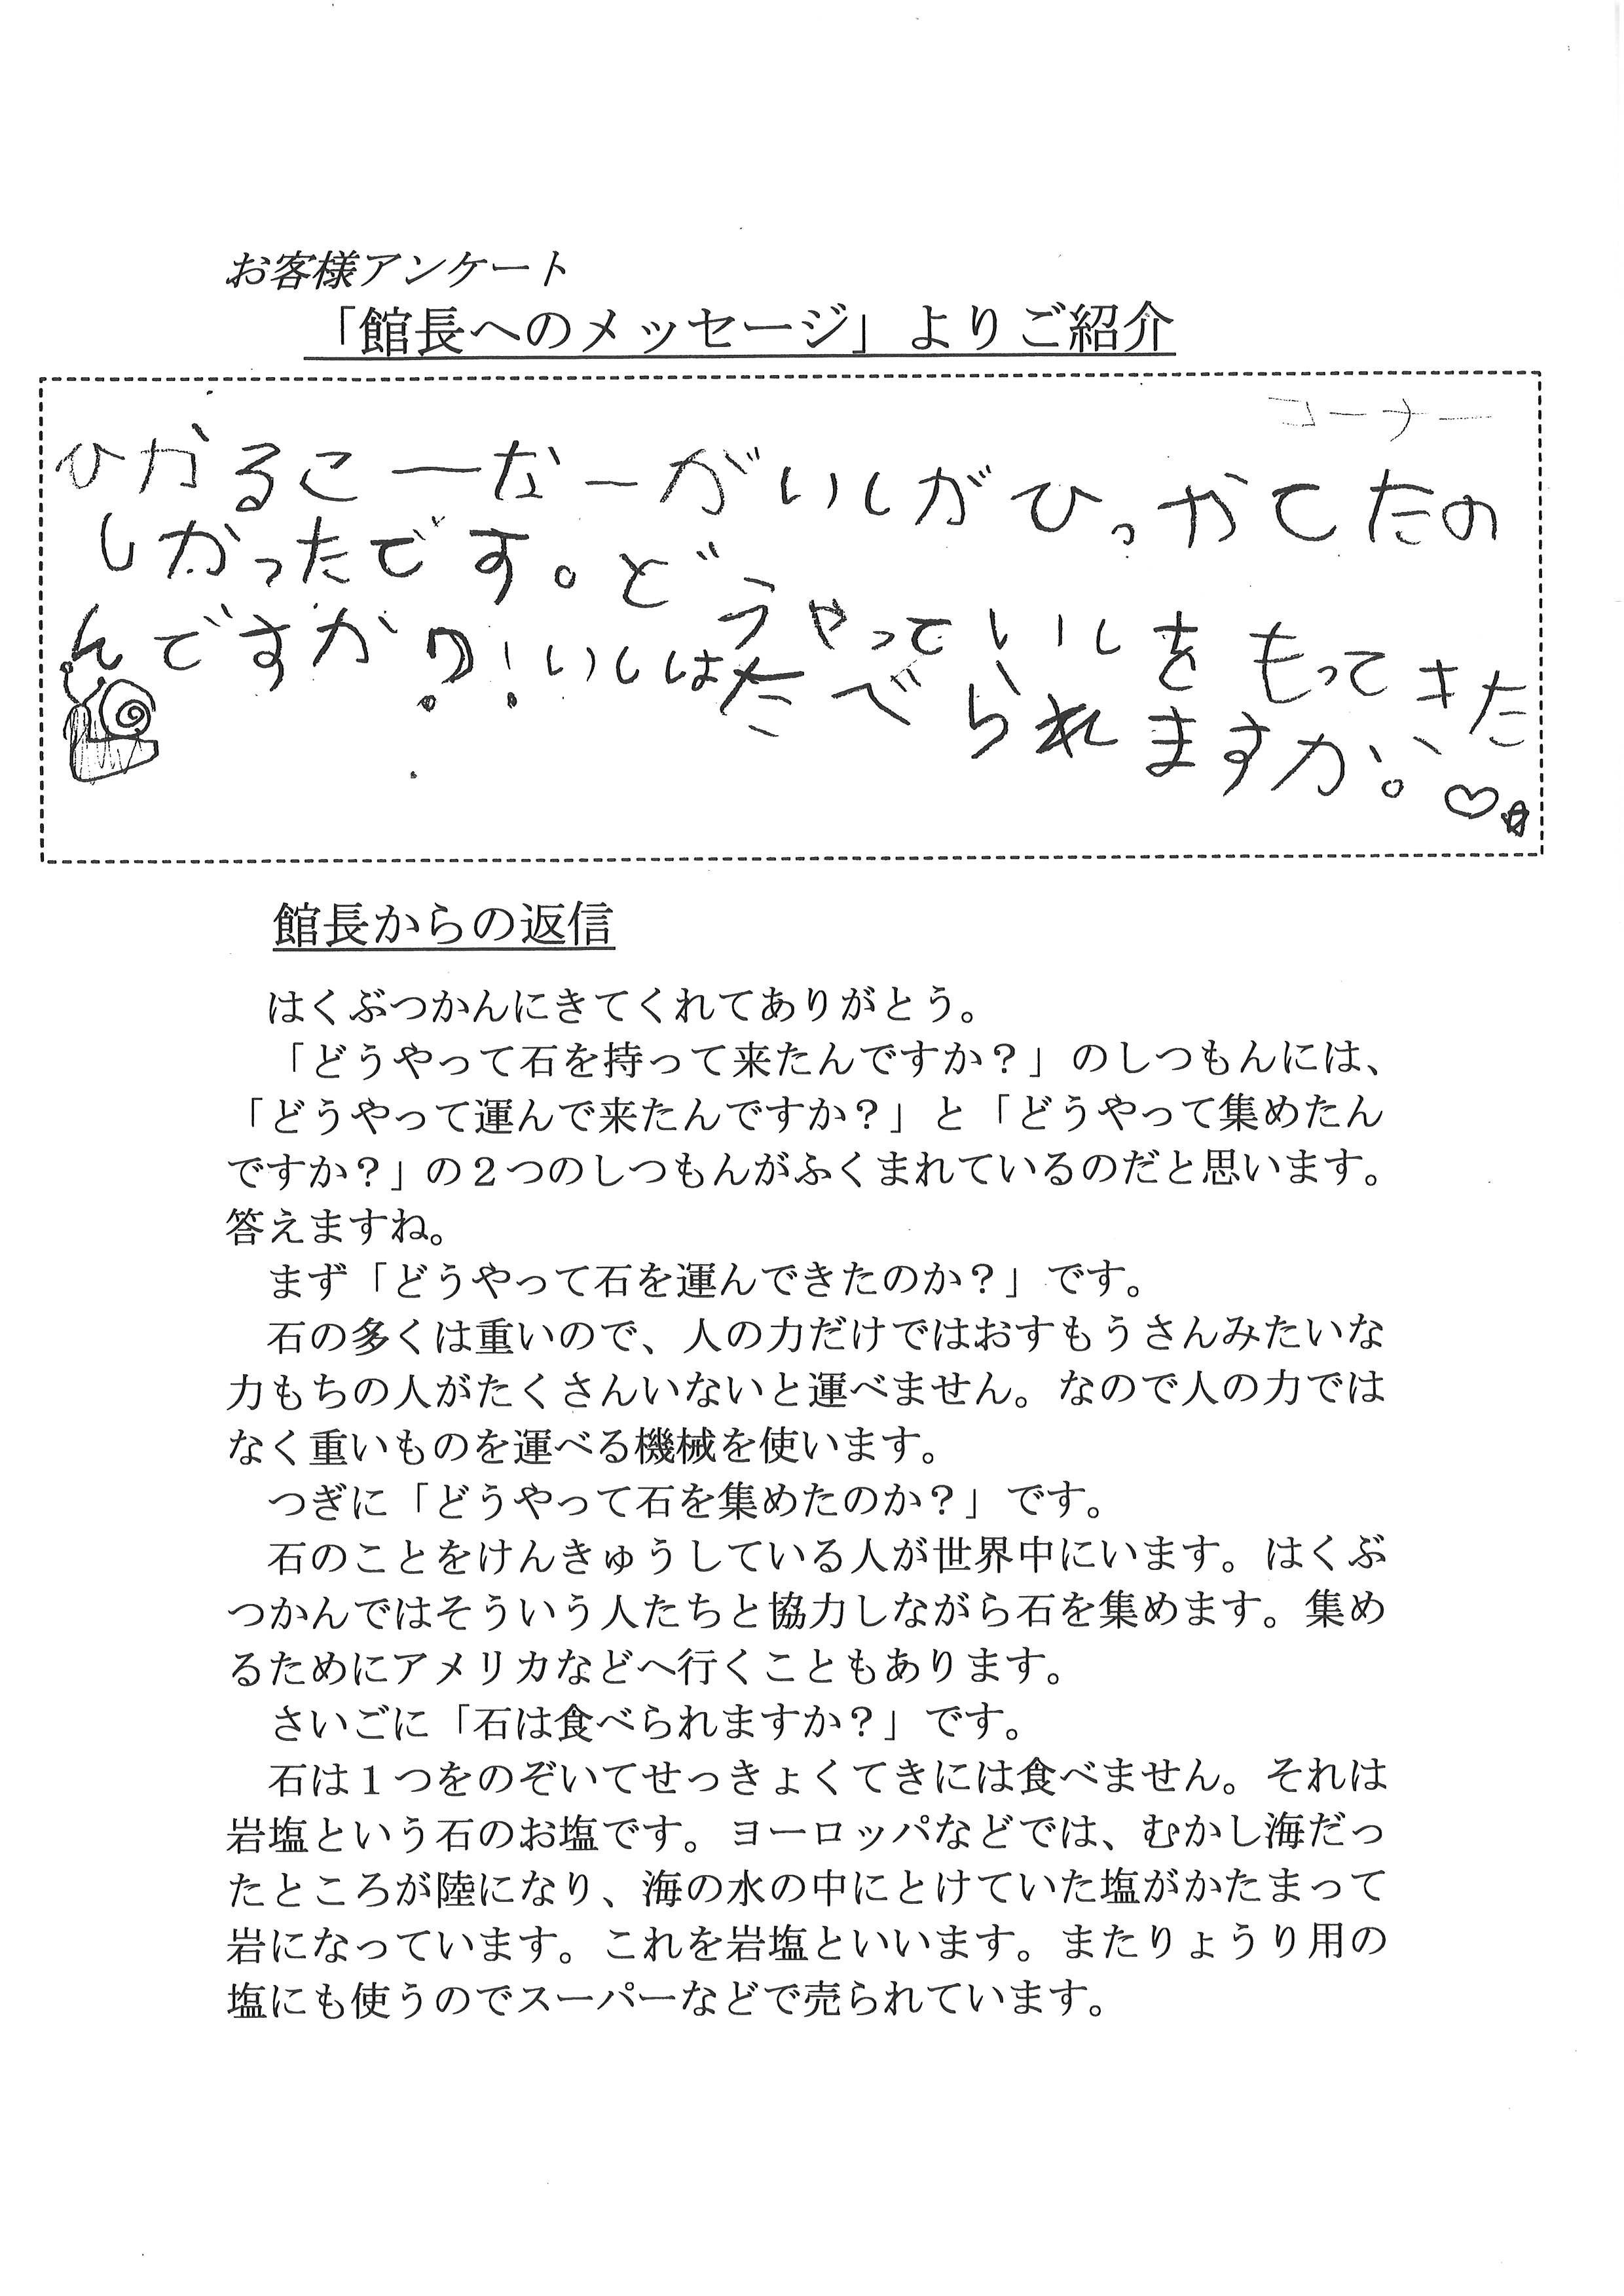 お客様アンケート
「館長へのメッセージ」よりご紹介
コーナー
ひかるこーなーがいしがひっやてたの
しかったです。どうやっていしをもってきた
んですか?!いしはたべられますか。
館長からの返信
はくぶつかんにきてくれてありがとう。
「どうやって石を持って来たんですか?」のしつもんには、
「どうやって運んで来たんですか?」と「どうやって集めたん
ですか?」の2つのしつもんがふくまれているのだと思います。
答えますね。
まず「どうやって石を運んできたのか?」です。
石の多くは重いので、人の力だけではおすもうさんみたいな
力もちの人がたくさんいないと運べません。なので人の力では
なく重いものを運べる機械を使います。
つぎに「どうやって石を集めたのか?」です。
石のことをけんきゅうしている人が世界中にいます。はくぶ
つかんではそういう人たちと協力しながら石を集めます。集め
るためにアメリカなどへ行くこともあります。
さいごに「石は食べられますか?」です。
石は1つをのぞいてせっきょくてきには食べません。それは
岩塩という石のお塩です。ヨーロッパなどでは、むかし海だっ
たところが陸になり、海の水の中にとけていた塩がかたまって
岩になっています。これを岩塩といいます。またりょうり用の
塩にも使うのでスーパーなどで売られています。